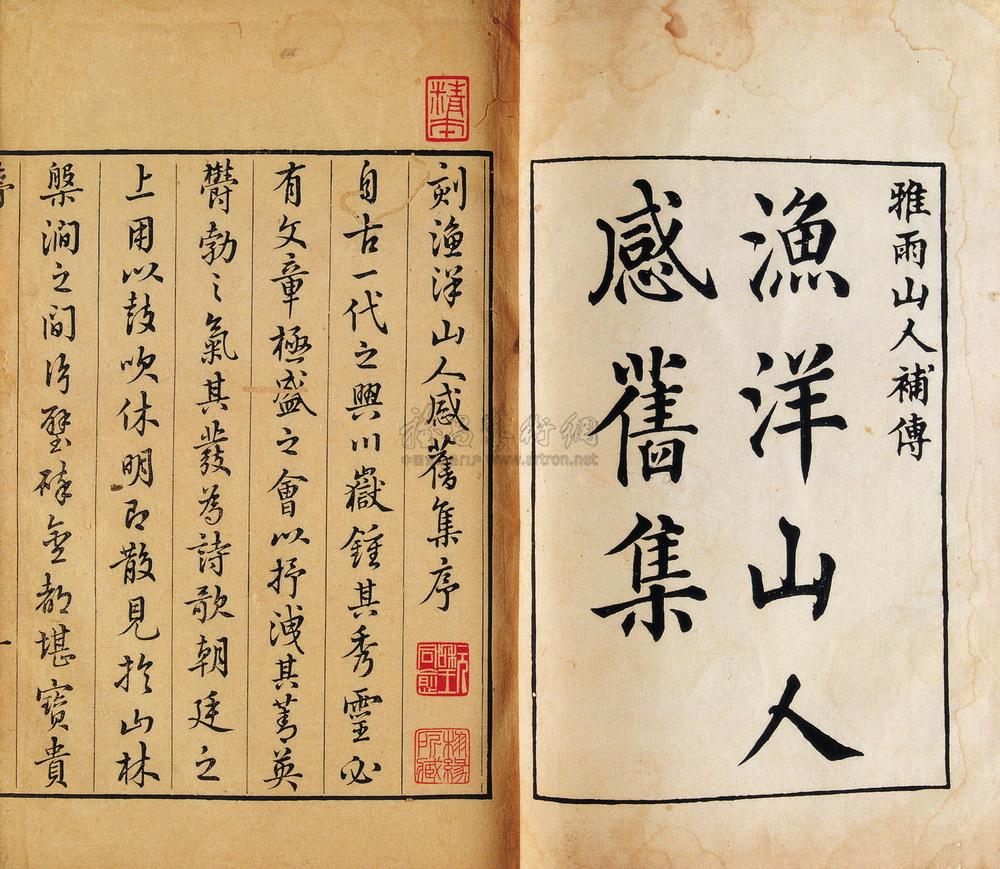 雅雨山人補傳
漁洋山人
感舊集
精本
刻漁洋山人感舊集序
自古一代之興川嶽鍾其秀靈必
有文章極盛之會以抒洩其菁英
鬱勃之氣其發為詩歌朝廷之
上用以鼓吹休明即散見於山林
槃澗之間片璧碎金都堪寶貴
www.artron.net